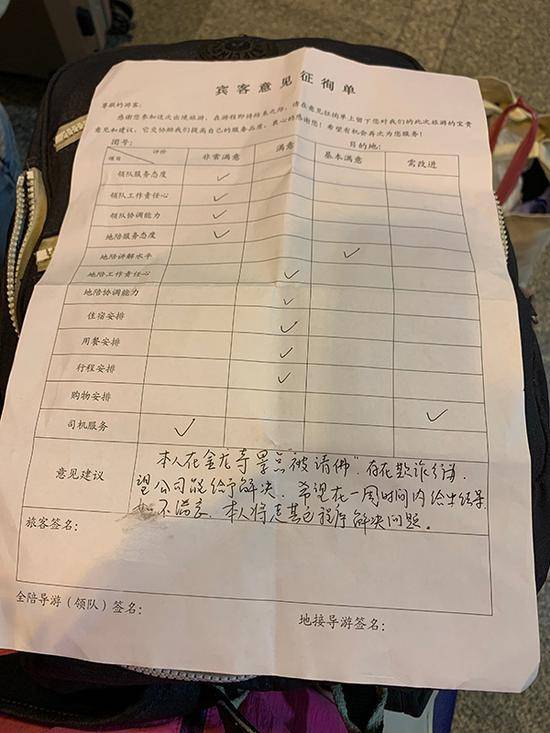 宾客意见征徇单
尊敬的游客:
感谢您参加这次出境旅游，在游程即将结束之际，请在意见征询单上留下您对我们的此次旅游的宝贵
意见和建议，它交协助我们提高自己的服务品质，衷心的感谢您！希望有机会再次为您服务！
团号: 目的地:
评价
项目 非常满意 满意 基本满意 需改进
领队服务态度 ✓
领队工作责任心 ✓
领队协调能力 ✓
地陪服务态度 ✓
地陪讲解水平 ✓
地陪工作责任心 ✓
地陪协调能力 ✓
住宿安排 ✓
用餐安排 ✓
行程安排 ✓
购物安排 ✓
司机服务 ✓
意见建议
本人在金龙寺景点"被请佛"存在欺诈行为，
望公司能给予解决。希望在一周时间内给出结果
如不满意，本人将走其它程序解决问题。
旅客签名:
全陪导游（领队）签名: 地接导游签名: